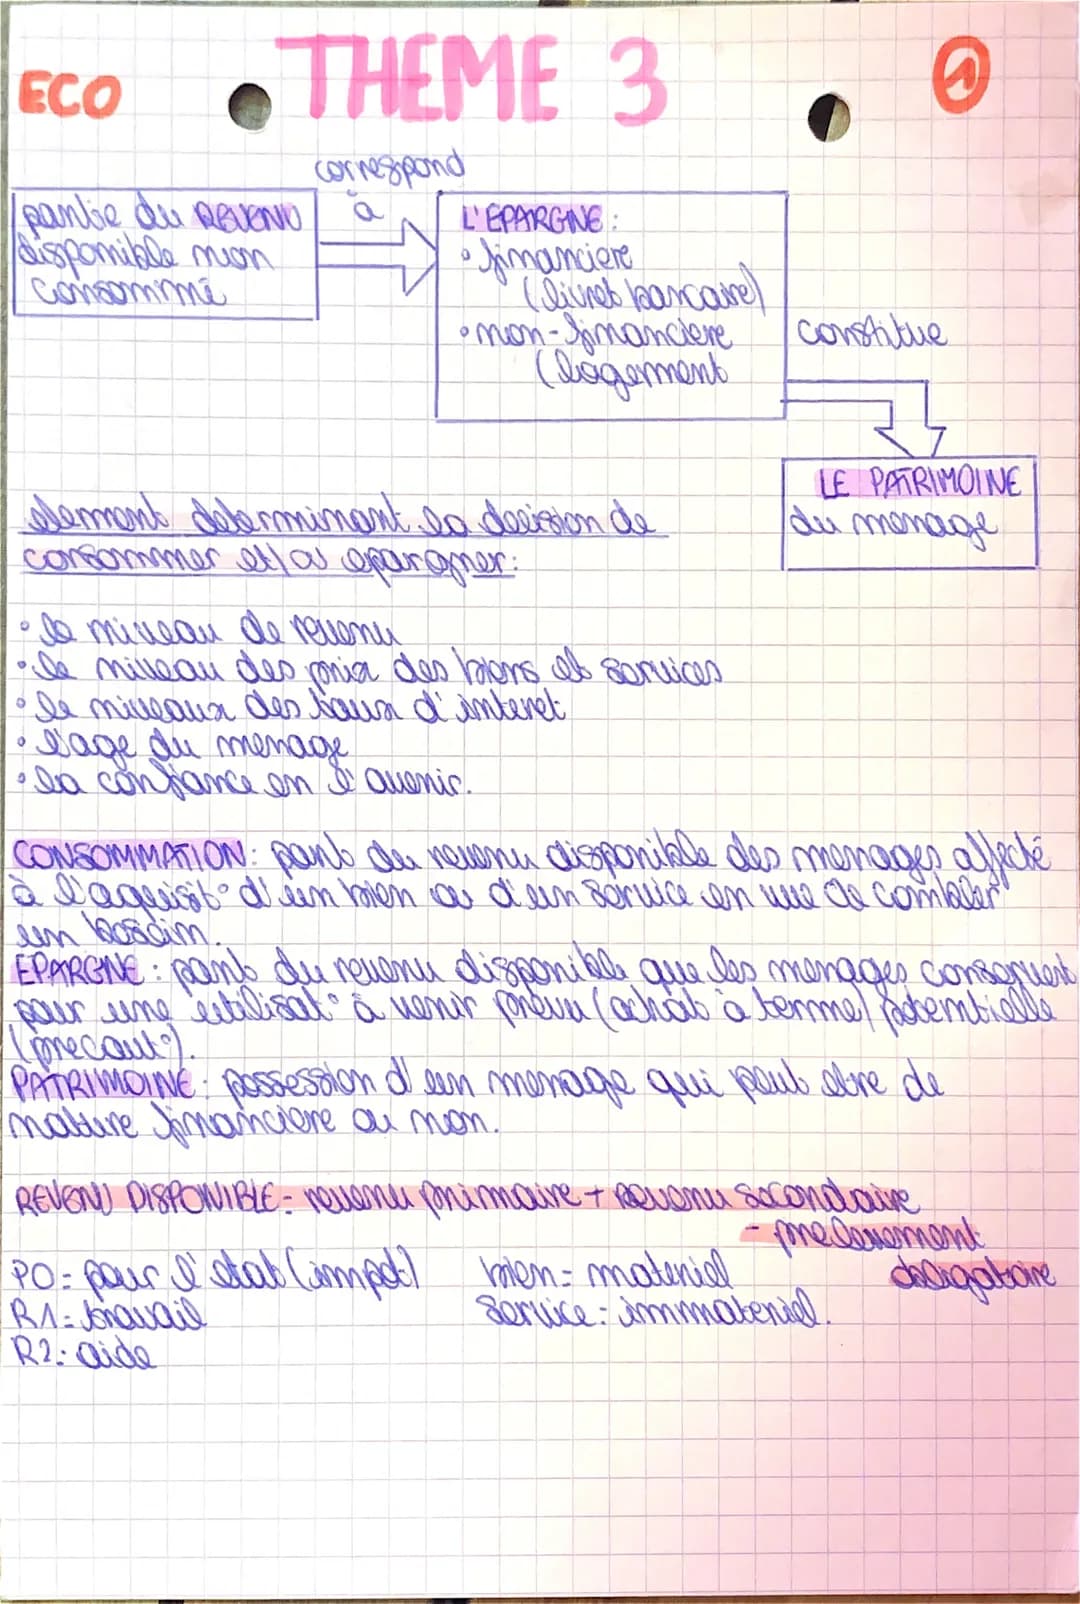 ECO
THEME 3
1
correspond
à
partie du REVENU
disponible non
consommé
L'EPARGNE :
• financiere
(livret bancaire)
• non-financiere
(logement
constitue
LE PATRIMOINE
du menage
element determinant la decision de
consommer et/ou epargner:
• le niveau de revenu
• le niveau des prix des biens et services
• le niveaux des taux d'interet
• l'age du menage
• la confiance en l'avenir.
CONSOMMATION: part du revenu disponible des menages affecté
à l'aquisit° d'un bien ou d'un service en vue de combler
un besoin.
EPARGNE : part du revenu disponible que les menages conservent
pour une utilisat° à venir prévu (achat à terme) potentielle
(precaut°).
PATRIMOINE : possession d'un menage qui peut etre de
nature financiere ou non.
REVENU DISPONIBLE = revenu primaire + revenu secondaire
- prelevement
obligatoire
PO = pour l'etat (impot)
bien = materiel
R1 = travail
service = immateriel.
R2 = aide